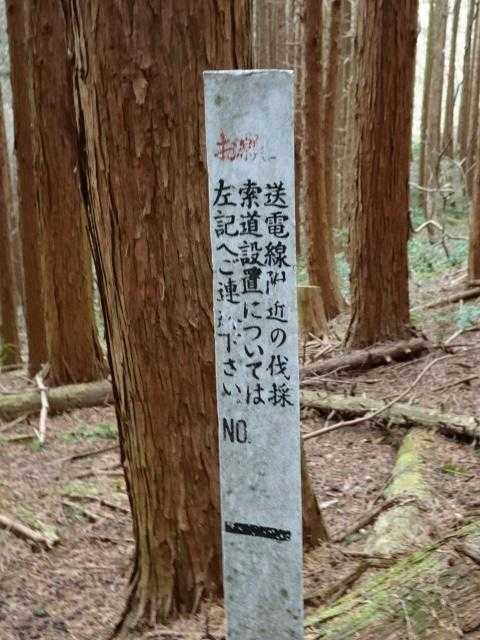 お願い
送電線附近の伐採
索道設置については
左記へご連絡下さい
NO.